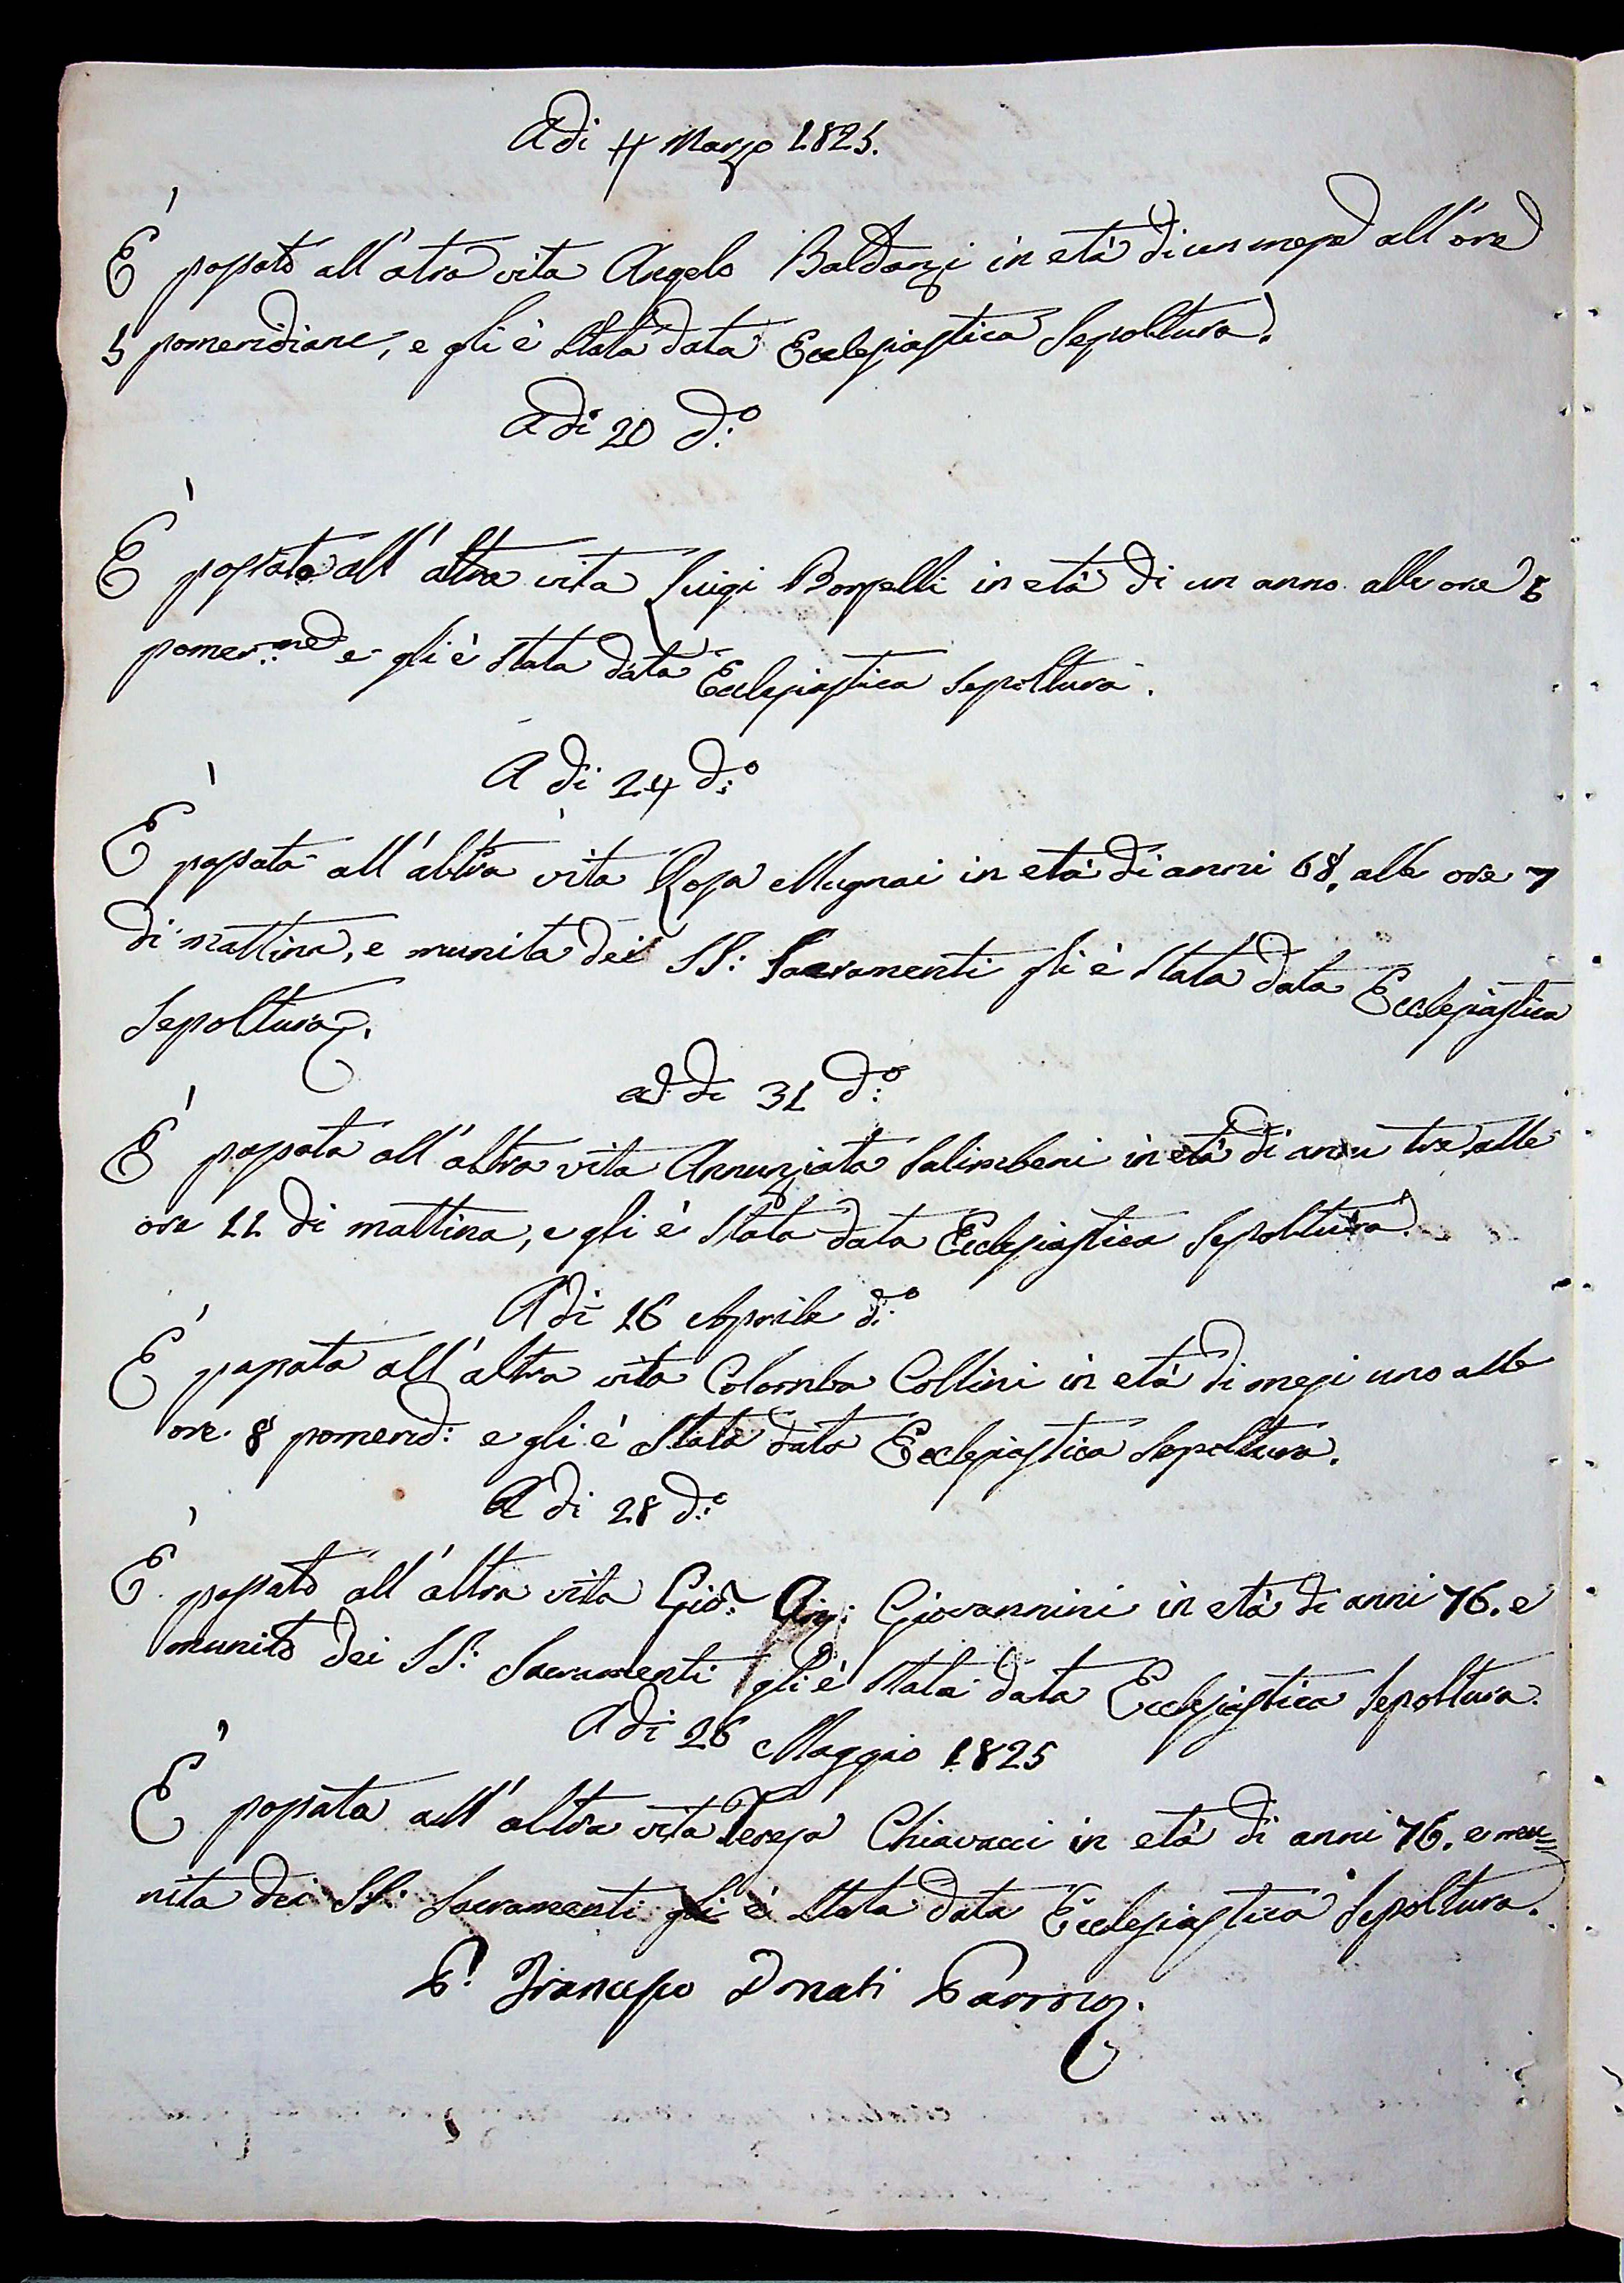 Adi 4 Marzo 1825.
È passato all'atra vita Angelo Baldanzi in età di un mese all'ore
5 pomeridiane, e gli è stata data Ecclesiastica Sepoltura.
Adi 20 d.º
È passato all'altra vita Luigi Borselli in età di un anno alle ore 5
pomer:ne e gli è stata data Ecclesiastica Sepoltura.
A di 24 d:º
È passata all'altra vita Rosa Mugnai in età di anni 68, alle ore 7
di mattina, e munita dei SS: Sacramenti gli è stata data Ecclesiastica
Sepoltura.
a di 31 d:º
È passata all'altra vita Annunziata Salimbeni in età di anni tre alle
ore 11 di mattina, e gli è stata data Ecclesiastica Sepoltura.
A di 16 Aprile d:º
È passata all'altra vita Colomba Collini in età di mesi uno alle
ore 8 pomerid: e gli è stata data Ecclesiastica Sepoltura.
A di 28 d:º
È passato all'altra vita Gio: Giovannini in età di anni 76. e
munito dei SS: Sacramenti gli è stata data Ecclesiastica Sepoltura.
A di 26 Maggio 1825
È passata all'altra vita Teresa Chiavacci in età di anni 76. e mu=
nita dei SS: Sacramenti gli è stata data Ecclesiastica Sepoltura.
P. Francesco Donati Parroco.